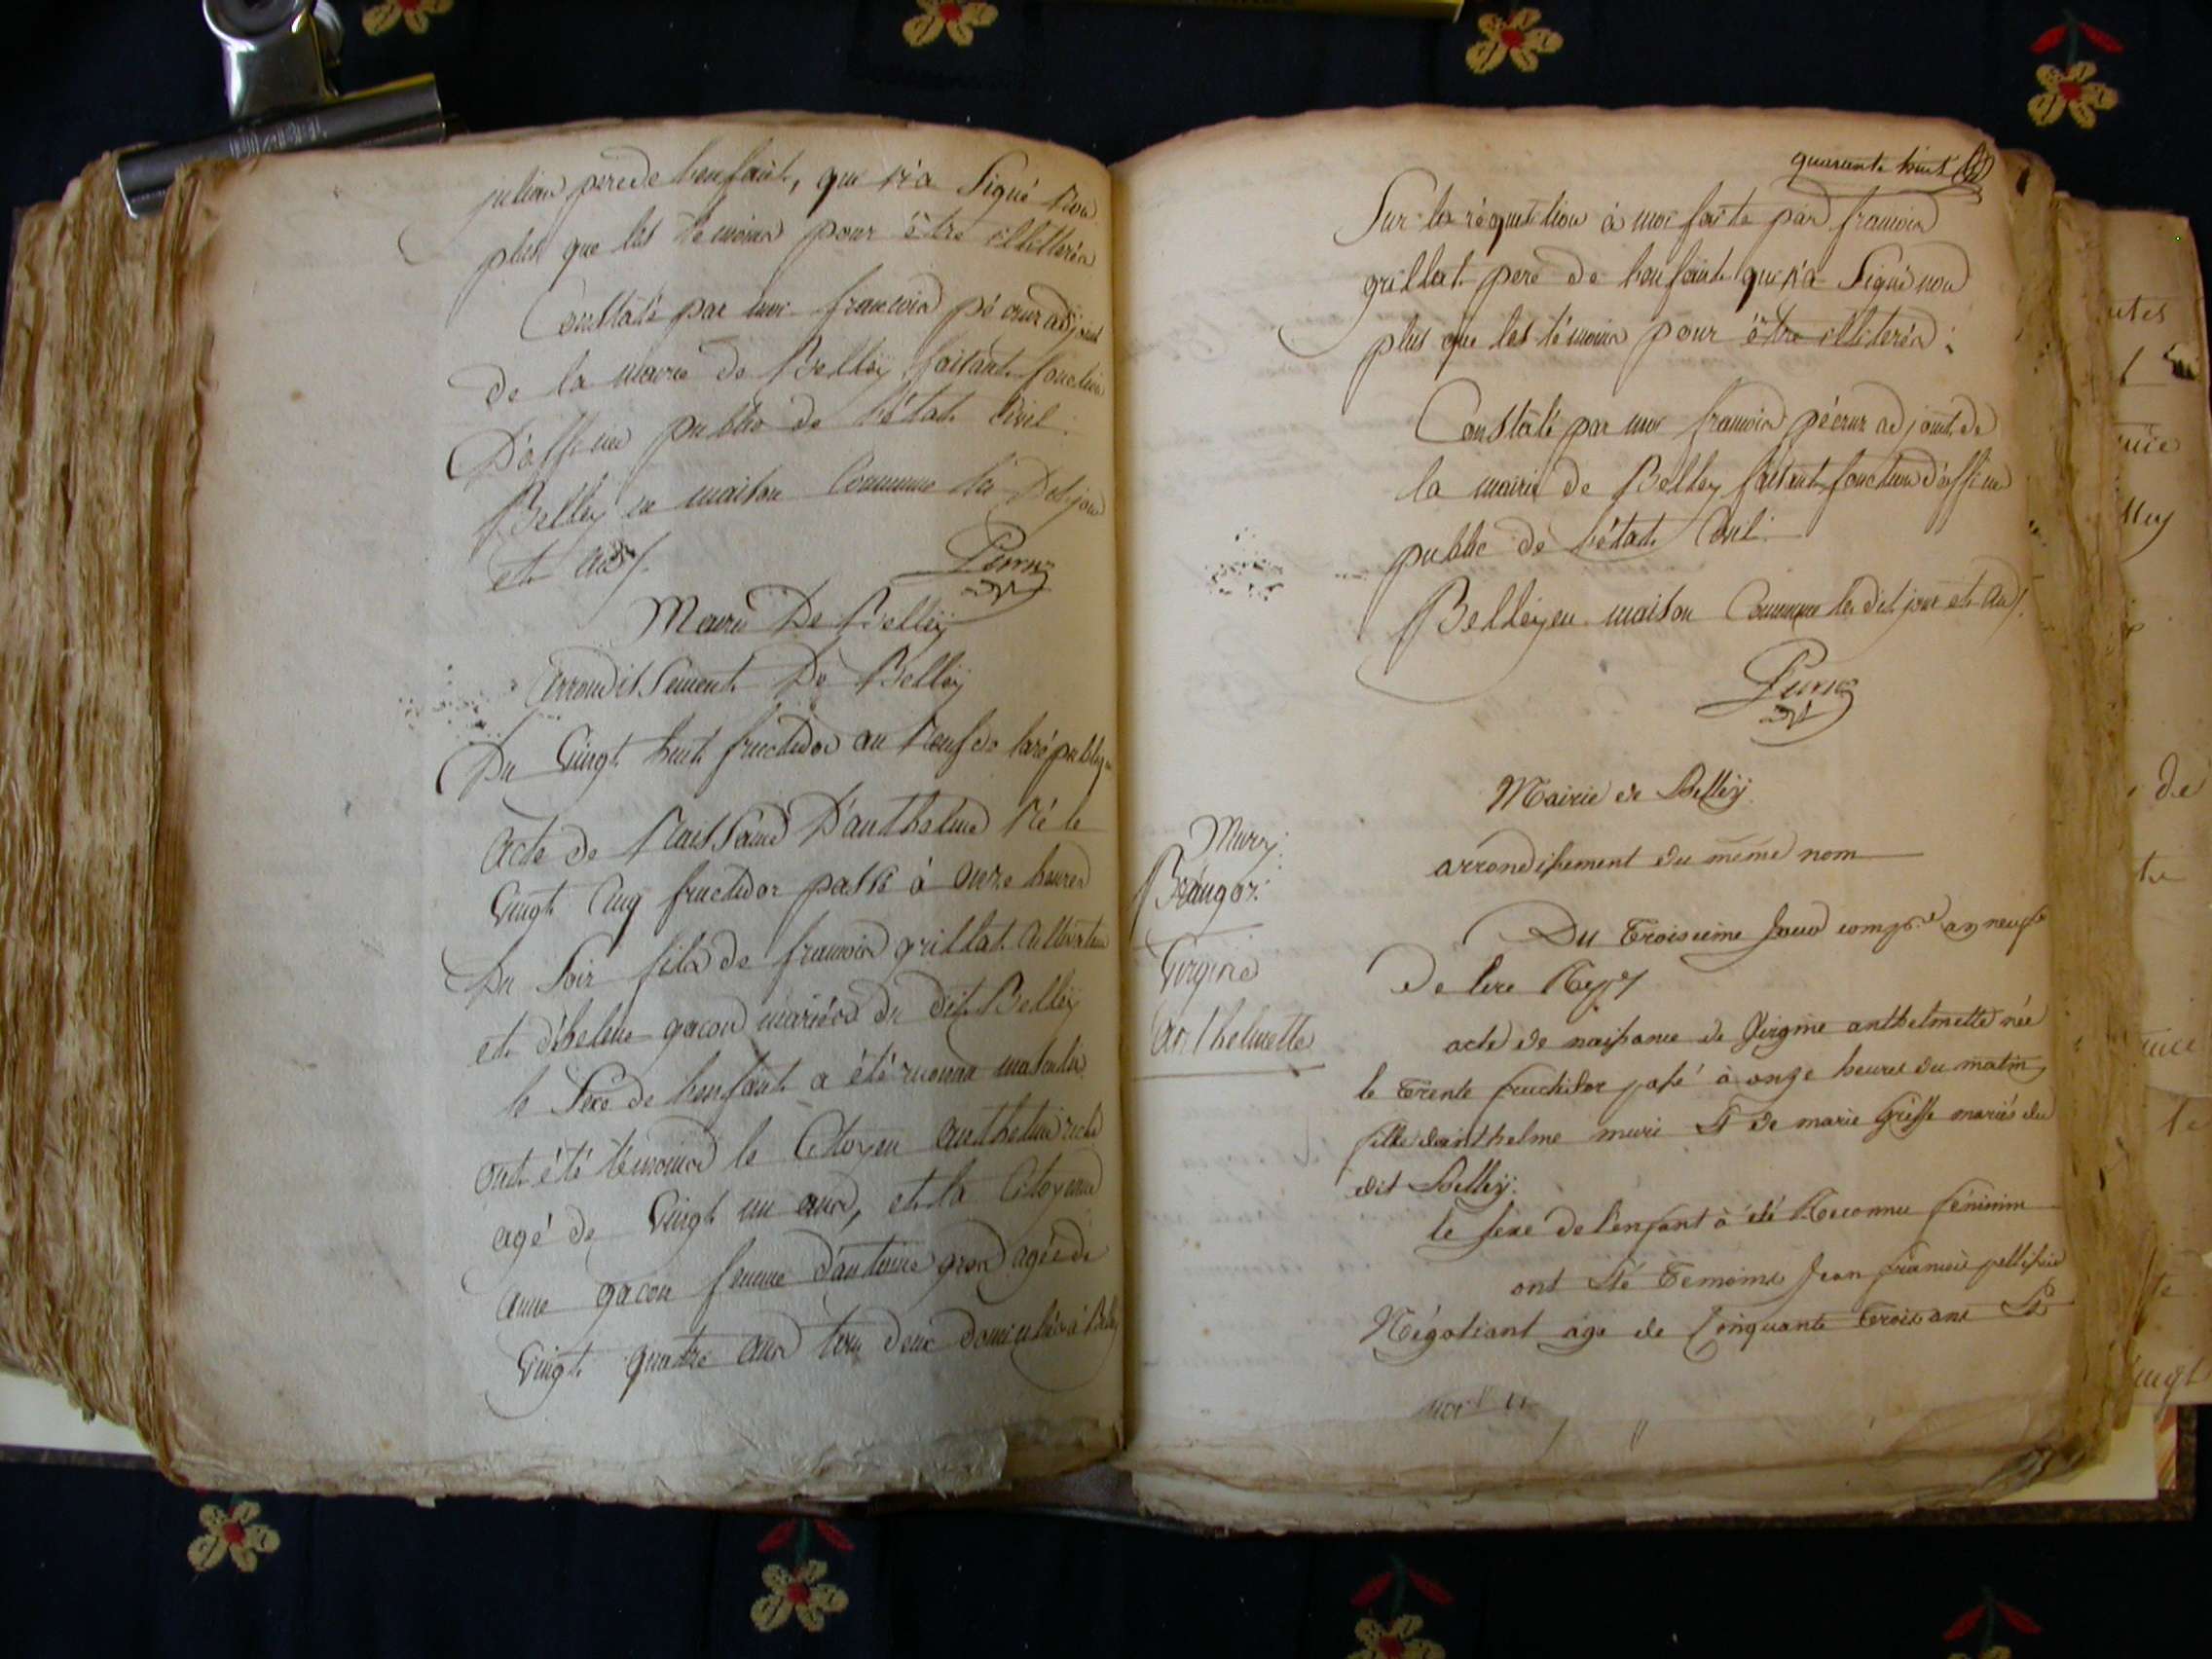 julian pere de lenfant, qui n'a Signé non
plus que les témoins pour être illitterés
Constaté par moi francois pécruz adjoint
de la mairie de Belleÿ faisant fonction
D'officier public de l'état Civil.
Belleÿ en maison Commune les Dit jour
et an
Mairie De Belleÿ
arrondissement De Belleÿ
Du Vingt huit fructidor an Neuf de la république
acte de Naissance D'anthelme Né le
Vingt Cinq fructidor passé à onze heures
Du Soir fils de francois grillat Cultivateur
et d'heleine gacon mariés du dit Belleÿ
le Sexe de lenfant a été reconnu masculin
ont été témoins le Citoyen anthelme
agé de Vingt un ans, et la Citoyenne
anne gacon femme d'antoine gros agée de
Vingt quatre ans tous deux domiciliés à Belleÿ
quarante huit
Sur la réquisition à moi faite par francois
grillat pere de lenfant qui n'a Signé non
plus que les témoins pour être illiterés.
Constaté par moi francois pécruz adjoint de
la mairie de Belleÿ faisant fonction d'officier
public de l'état Civil.
Belleÿ en maison Commune les dit jour et an
Mairie de Belleÿ
arrondissement du même nom
Murry
Virginie
anthelmette
Du Troisieme Jour comp.re an neuf
De lere Rep
acte de naissance de Virginie anthelmette née
le trente fructidor passé à onze heures du matin
fille danthelme murri Et de marie Griffe mariés du
dit Belleÿ.
le sexe de l'enfant à été Reconnu féminin
ont été Temoins Jean francois pellissier
Négotiant agé de Cinquante trois ans Et